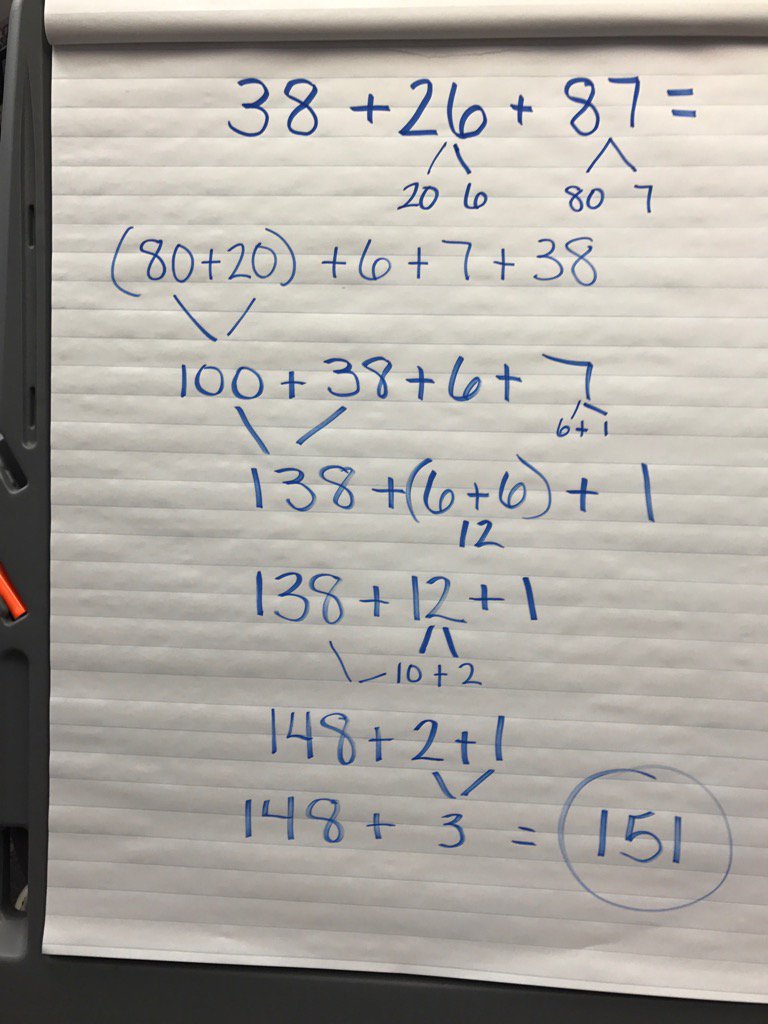 38 + 26 + 87 =
20 6 80 7
(80+20) + 6 + 7 + 38
100 + 38 + 6 + 7
6 + 1
138 + (6 + 6) + 1
12
138 + 12 + 1
10 + 2
148 + 2 + 1
148 + 3 = 151